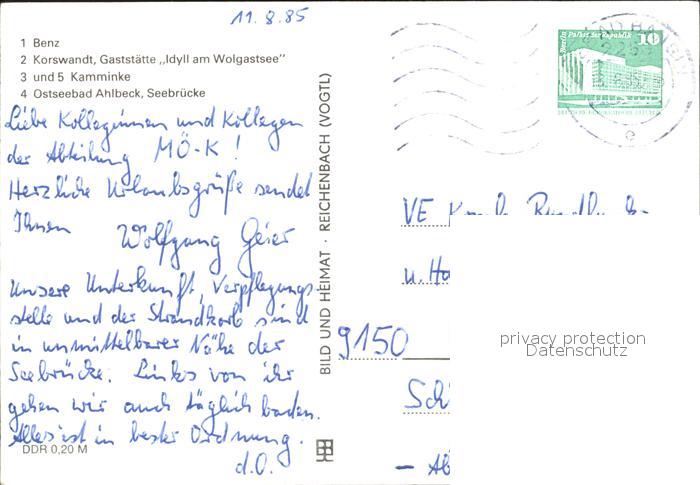 11.8.85
1 Benz
2 Korswandt, Gaststätte „Idyll am Wolgastsee"
3 und 5 Kamminke
4 Ostseebad Ahlbeck, Seebrücke
Liebe Kolleginnen und Kollegen
der Abteilung MÖ-K!
Herzliche Urlaubsgrüße sendet
Ihnen Wolfgang Geier
Unsere Unterkunft, Verpflegungs-
stelle und der Strandkorb sind
in unmittelbarer Nähe der
Seebrücke. Links von ihr
gehen wir auch täglich baden.
Alles ist in bester Ordnung.
d.O.
DDR 0,20 M
BILD UND HEIMAT · REICHENBACH (VOGTL)
Berlin Palast der Republik 10
VE
u. Ha
9150
privacy protection
Datenschutz
Sch